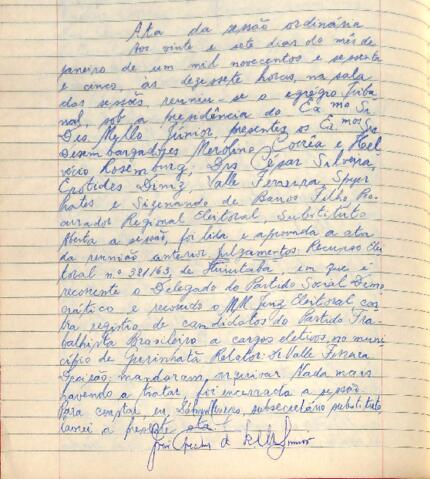 Ata da sessão ordinária
Aos vinte e sete dias do mês de
janeiro de um mil novecentos e sessenta
e cinco, às dezessete horas, na sala
das sessões, reuniu-se o egrégio Tribu
nal, sob a presidência do Exmo Sr
Des Mello Júnior, presentes os Exmos Srs
Desembargadores Merolino Corrêa e Hel
vécio Rosemburg, Drs César Silveira
Erotides Diniz, Valle Ferreira,
Prates e Sizenando de Barros Filho, Pro
curador Regional Eleitoral, Substituto
Aberta a sessão, foi lida e aprovada a ata
da reunião anterior Julgamentos: Recurso Elei
toral n.º 381/63, de Ituiutaba, em que é
recorrente o Delegado do Partido Social Demo
crático e recorrido o MM Juiz Eleitoral, con
tra registro de candidatos do Partido Tra
balhista Brasileiro a cargos eletivos, no muni
cípio de Gurinhatã Relator: Dr Valle Ferreira
Decisão: mandaram arquivar Nada mais
havendo a tratar, foi encerrada a sessão.
Para constar, eu, subsecretário substituto
lavrei a presente ata.